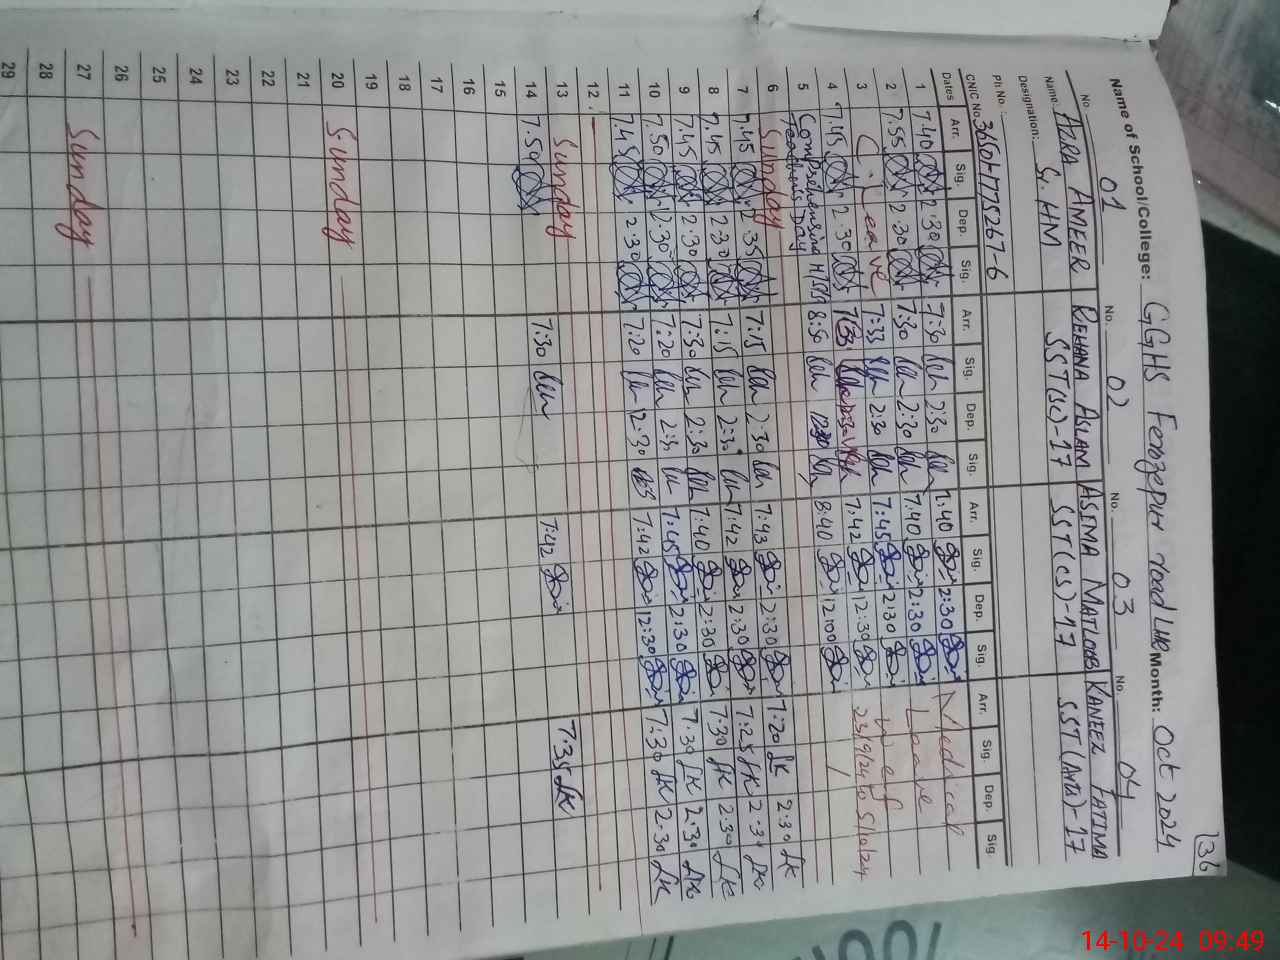 136
Name of School/College: GGHS Ferozepur road LHR Month: Oct 2024
No. 01 No. 02 No. 03 No. 04
Name: AZRA AMEER REHANA ASLAM ASIMA MATLOOB KANEEZ FATIMA
Designation: Sr. HM SST(sc)-17 SST(cs)-17 SST(Arts)-17
Ph No.
CNIC No.
Dates Arr. Sig. Dep. Sig. Arr. Sig. Dep. Sig. Arr. Sig. Dep. Sig. Arr. Sig. Dep. Sig.
1 7.40 2.30 7:30 2:30 7:40 2:30 Medical
2 7.55 2.30 7:30 2:30 7:40 2:30 Leave
3 C. Leave 7:33 2:30 7:45 2:30 w.e.f
4 7.45 2.30 7:42 12:30 23/9/24 to 5/10/24
5 8:50 8:40 12:00
6 Sunday
7 7.45 2.35 7:15 2:30 7:43 2:30 7:20 2:30
8 7.45 2.30 7:15 2:30 7:42 2:30 7:25 2:30
9 7.45 2.30 7:30 2:30 7:40 2:30 7:30 2:30
10 7.50 2.30 7:20 2:30 7:45 2:30 7:30 2:30
11 7.45 2.30 7:20 12:30 7:42 12:30 7:30 2:30
12
13 Sunday
14 7.50 7:30 7:42 7:35
15
16
17
18
19
20 Sunday
21
22
23
24
25
26
27 Sunday
28
29
14-10-24 09:49